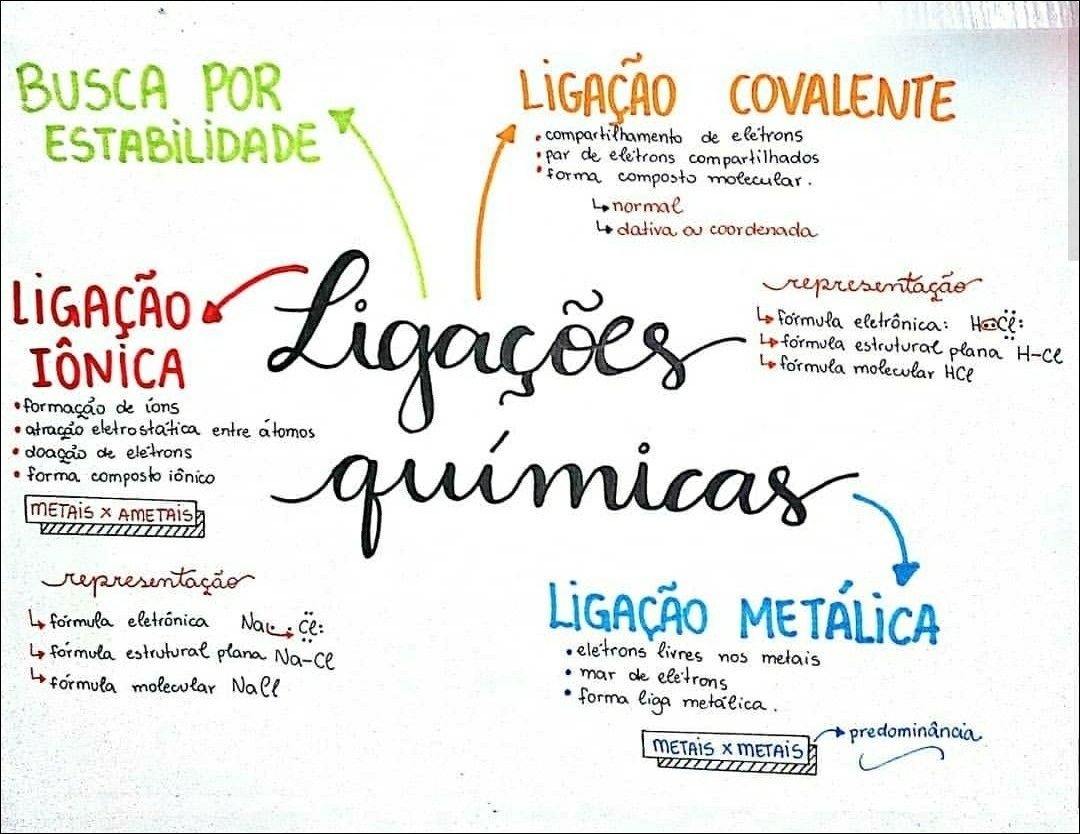 BUSCA POR
ESTABILIDADE
LIGAÇÃO COVALENTE
• compartilhamento de elétrons
• par de elétrons compartilhados
• forma composto molecular.
↳ normal
↳ dativa ou coordenada
representação
↳ fórmula eletrônica: H Cl:
↳ fórmula estrutural plana H-Cl
↳ fórmula molecular HCl
Ligações
químicas
LIGAÇÃO
IÔNICA
• formação de íons
• atração eletrostática entre átomos
• doação de elétrons
• forma composto iônico
METAIS X AMETAIS
representação
↳ fórmula eletrônica Na Cl:
↳ fórmula estrutural plana Na-Cl
↳ fórmula molecular NaCl
LIGAÇÃO METÁLICA
• elétrons livres nos metais
• mar de elétrons
• forma liga metálica.
METAIS X METAIS → predominância